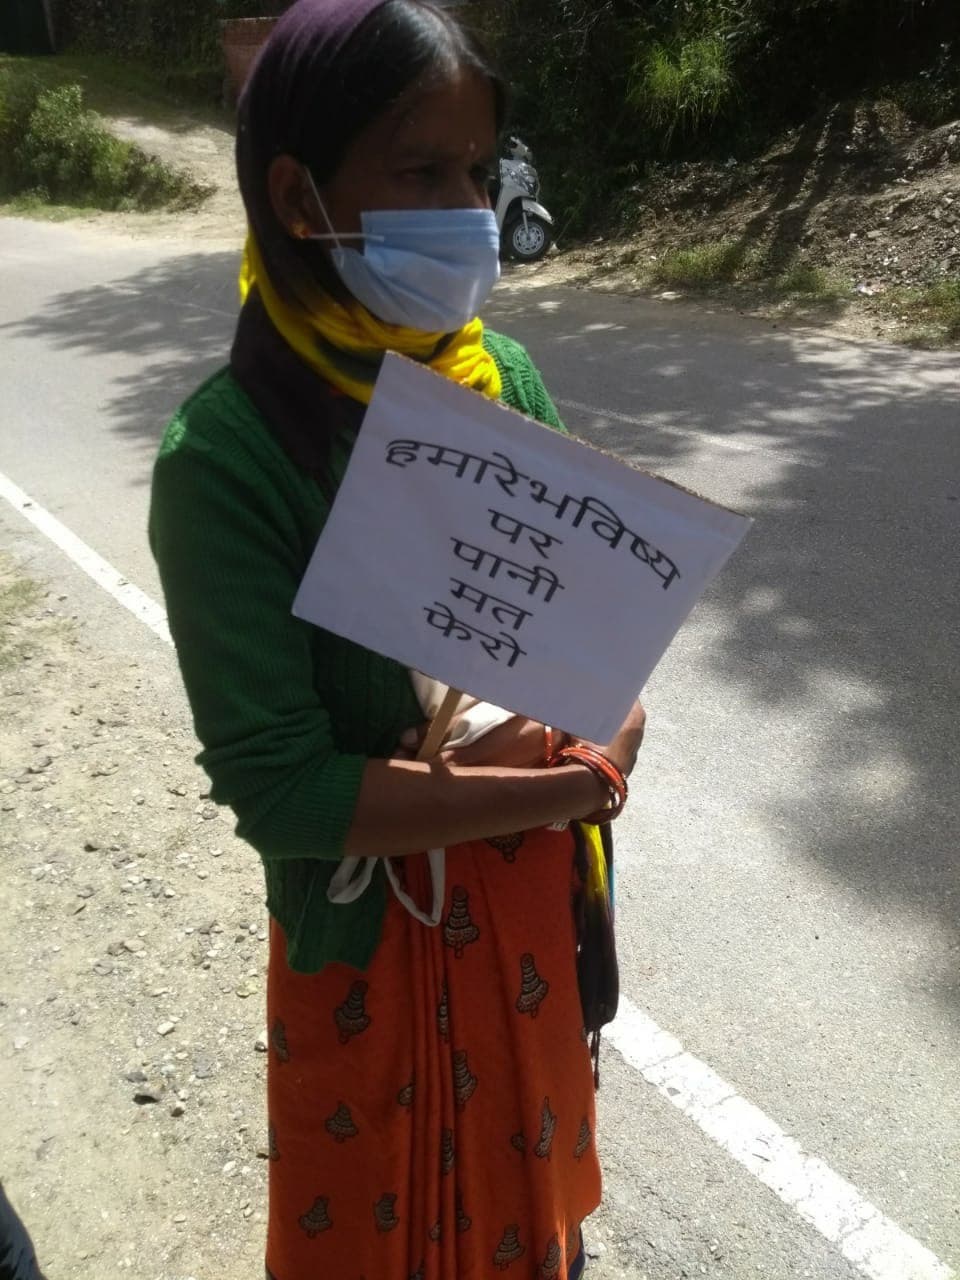 हमारेभविष्य
पर
पानी
मत
फेरो